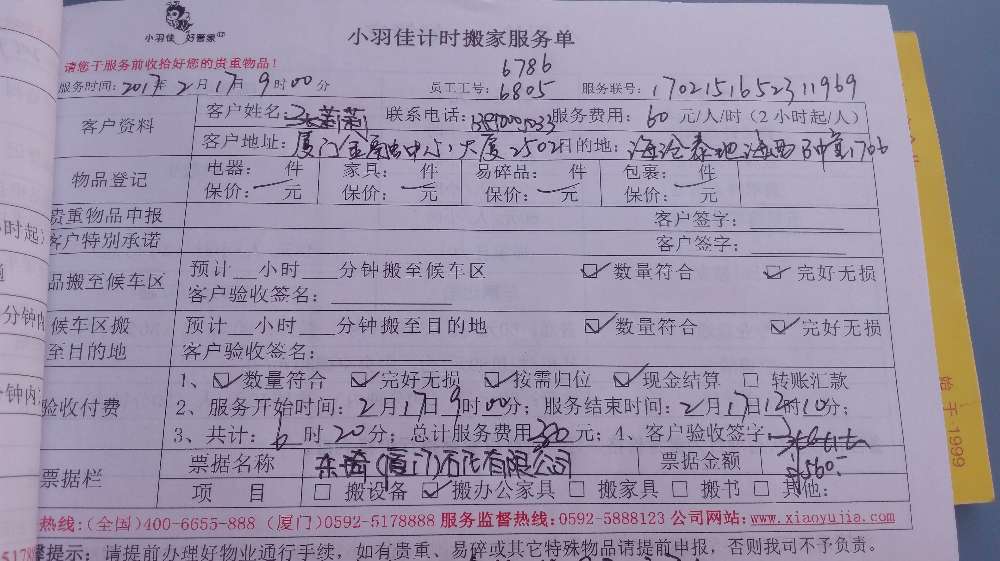 小羽佳 好管家
小羽佳计时搬家服务单
请您于服务前收拾好您的贵重物品!
6786
服务时间: 2017年2月17日9时00分 员工工号: 6805 服务联号: 1702151652311969
客户资料
客户姓名: 联系电话: 服务费用: 60 元/人/时 (2小时起/人)
客户地址: 厦门金融中心大厦2502 目的地: 海沧泰地海西中心1706
物品登记
电器: 件 家具: 件 易碎品: 件 包裹: 件
保价: 元 保价: 元 保价: 元 保价: 元
贵重物品申报 客户签字:
客户特别承诺 客户签字:
品搬至候车区
预计 小时 分钟搬至候车区 ☑数量符合 ☑完好无损
客户验收签名:
候车区搬至目的地
预计 小时 分钟搬至目的地 ☑数量符合 ☑完好无损
客户验收签名:
验收付费
1、☑数量符合 ☑完好无损 ☑按需归位 ☑现金结算 □转账汇款
2、服务开始时间: 2月17日9时00分; 服务结束时间: 2月17日12时10分;
3、共计: 6时20分; 总计服务费用380元; 4、客户验收签字
票据栏
票据名称 东琦(厦门)石化有限公司 票据金额 560
项 目 □搬设备 ☑搬办公家具 □搬家具 □搬书 □其他:
热线: (全国)400-6655-888 (厦门)0592-5178888 服务监督热线: 0592-5888123 公司网站: www.xiaoyujia.com
提示: 请提前办理好物业通行手续, 如有贵重、易碎或其它特殊物品请提前申报, 否则我司不予负责。
始于1999